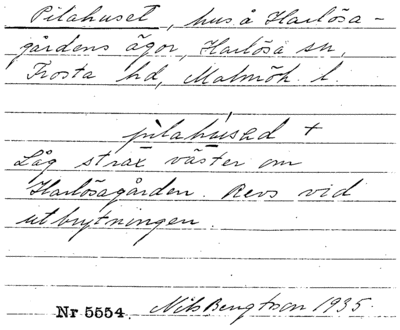 Pilahuset, hus å Harlösa-
gårdens ägor, Harlösa sn,
Frosta hd, Malmöh. l.
pilahúsad +
Låg strax väster om
Harlösagården. Revs vid
utbrytningen.
Nr 5554. Nils Bengtson 1935.